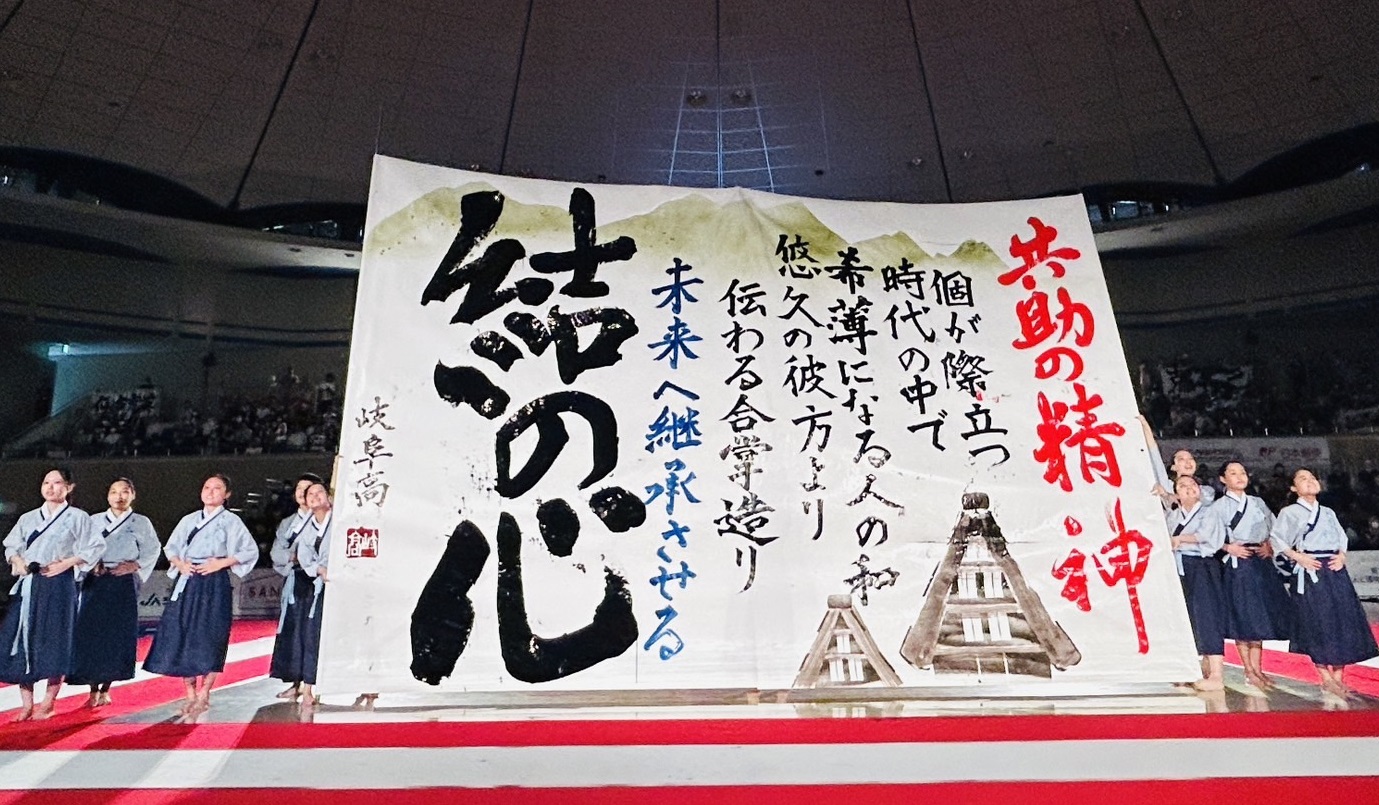 共助の精神
個が際立つ
時代の中で
希薄になる人の和
悠久の彼方より
伝わる合掌造り
未来へ継承させる
結の心
岐阜高
岐高